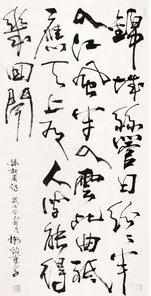 錦城絲管日紛〻半
入江風半入雲此曲祗
應天上有人間能得
幾回聞
杜甫詩